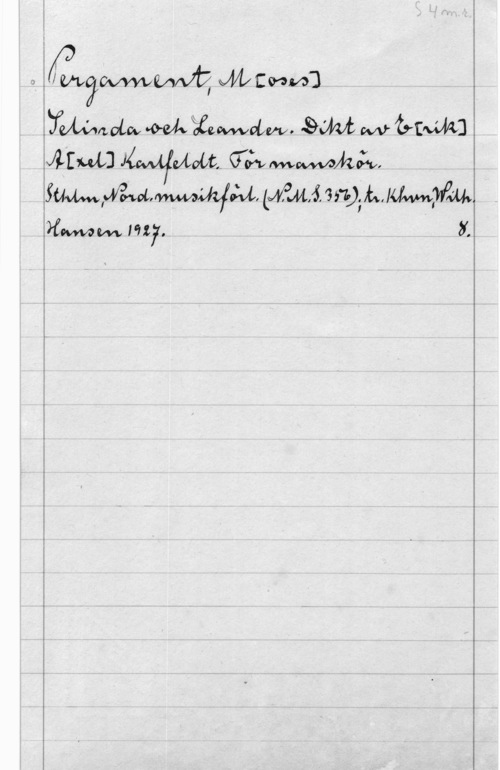 S 4 m r.
Pergament, M[oses]
Selinda och Leander. Dikt av E[rik]
A[xel] Karlfeldt. För manskör.
Sthlm, Nord. musikförl. (N.M.S. 356); tr. Khvn, Wilh.
Hansen 1927. 8.